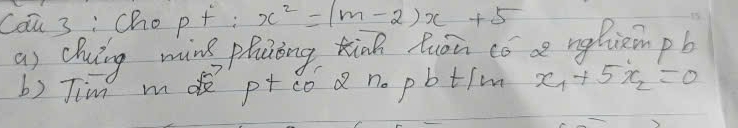 Câu 3 : Cho pt : x² = (m-2)x + 5
a) chứng minh phương trình luôn có 2 nghiệm pb
b) Tìm m để pt có 2 n₀ pb t/m x₁ + 5x₂ = 0